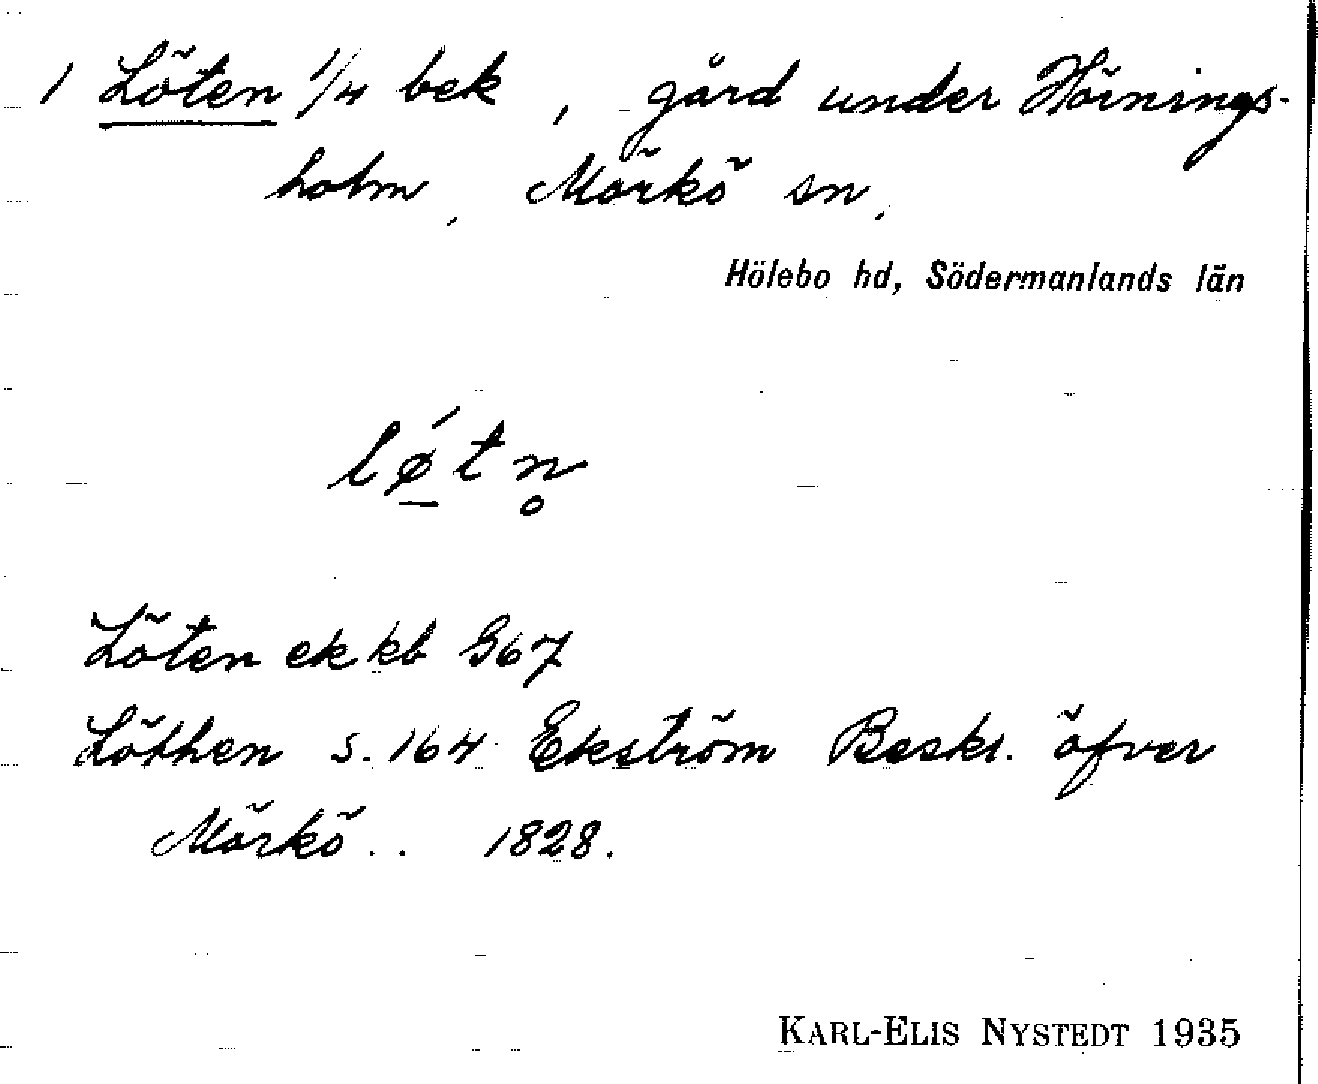 1 Löten 1/4 bek, gård under Hörnings-
holm, Mörkö sn.
Hölebo hd, Södermanlands län
lǿ̲tn̥
Löten ek kb G67
Löthen s. 164 Ekström Beskr. öfver
Mörkö .. 1828.
KARL-ELIS NYSTEDT 1935